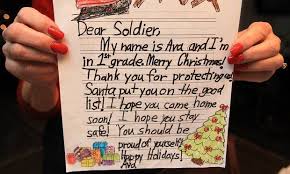 Dear Soldier,
My name is Ava and I'm
in 1st grade. Merry Christmas!
Thank you for protecting us!
Santa put you on the good
list! I hope you come home
soon! I hope you stay
safe! You should be
proud of yourself!
Happy Holidays!
Ava